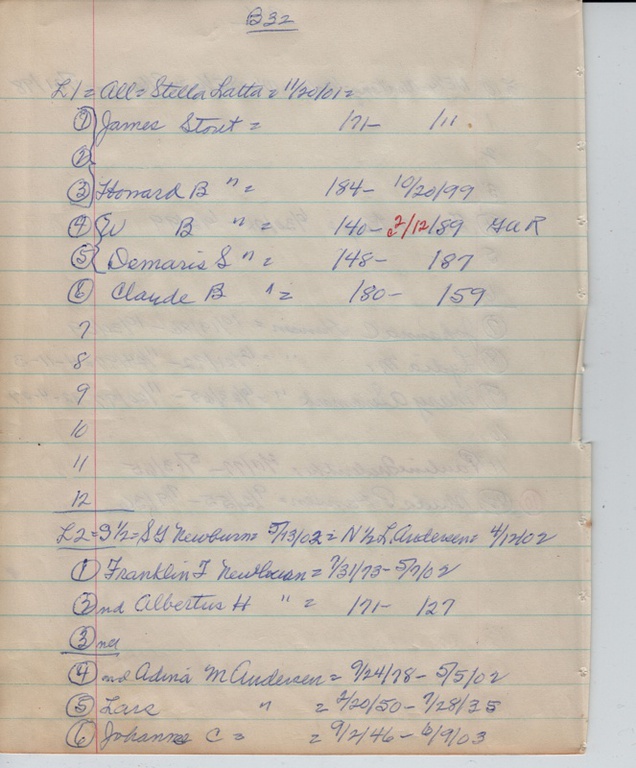 B32
L1 = All = Stella Latta = 11/20/01 =
① James Stout = 171- 111
②
③ Howard B " = 184- 10/20/99
④ W B " = 140- 2/12/89 GAR
⑤ Demaris S " = 148- 187
⑥ Claude B " = 180- 159
7
8
9
10
11
12
L2 = S 1/2 = S Y Newburn = 5/13/02 = N 1/2 L. Andersen = 4/12/02
① Franklin F Newburn = 7/31/73 - 5/7/02
② nd Albertus H " = 171- 127
③ nd
④ nd Adina M Andersen = 9/24/78 - 5/5/02
⑤ Lars " = 2/20/50 - 7/28/35
⑥ Johanne C = = 9/2/46 - 6/9/03